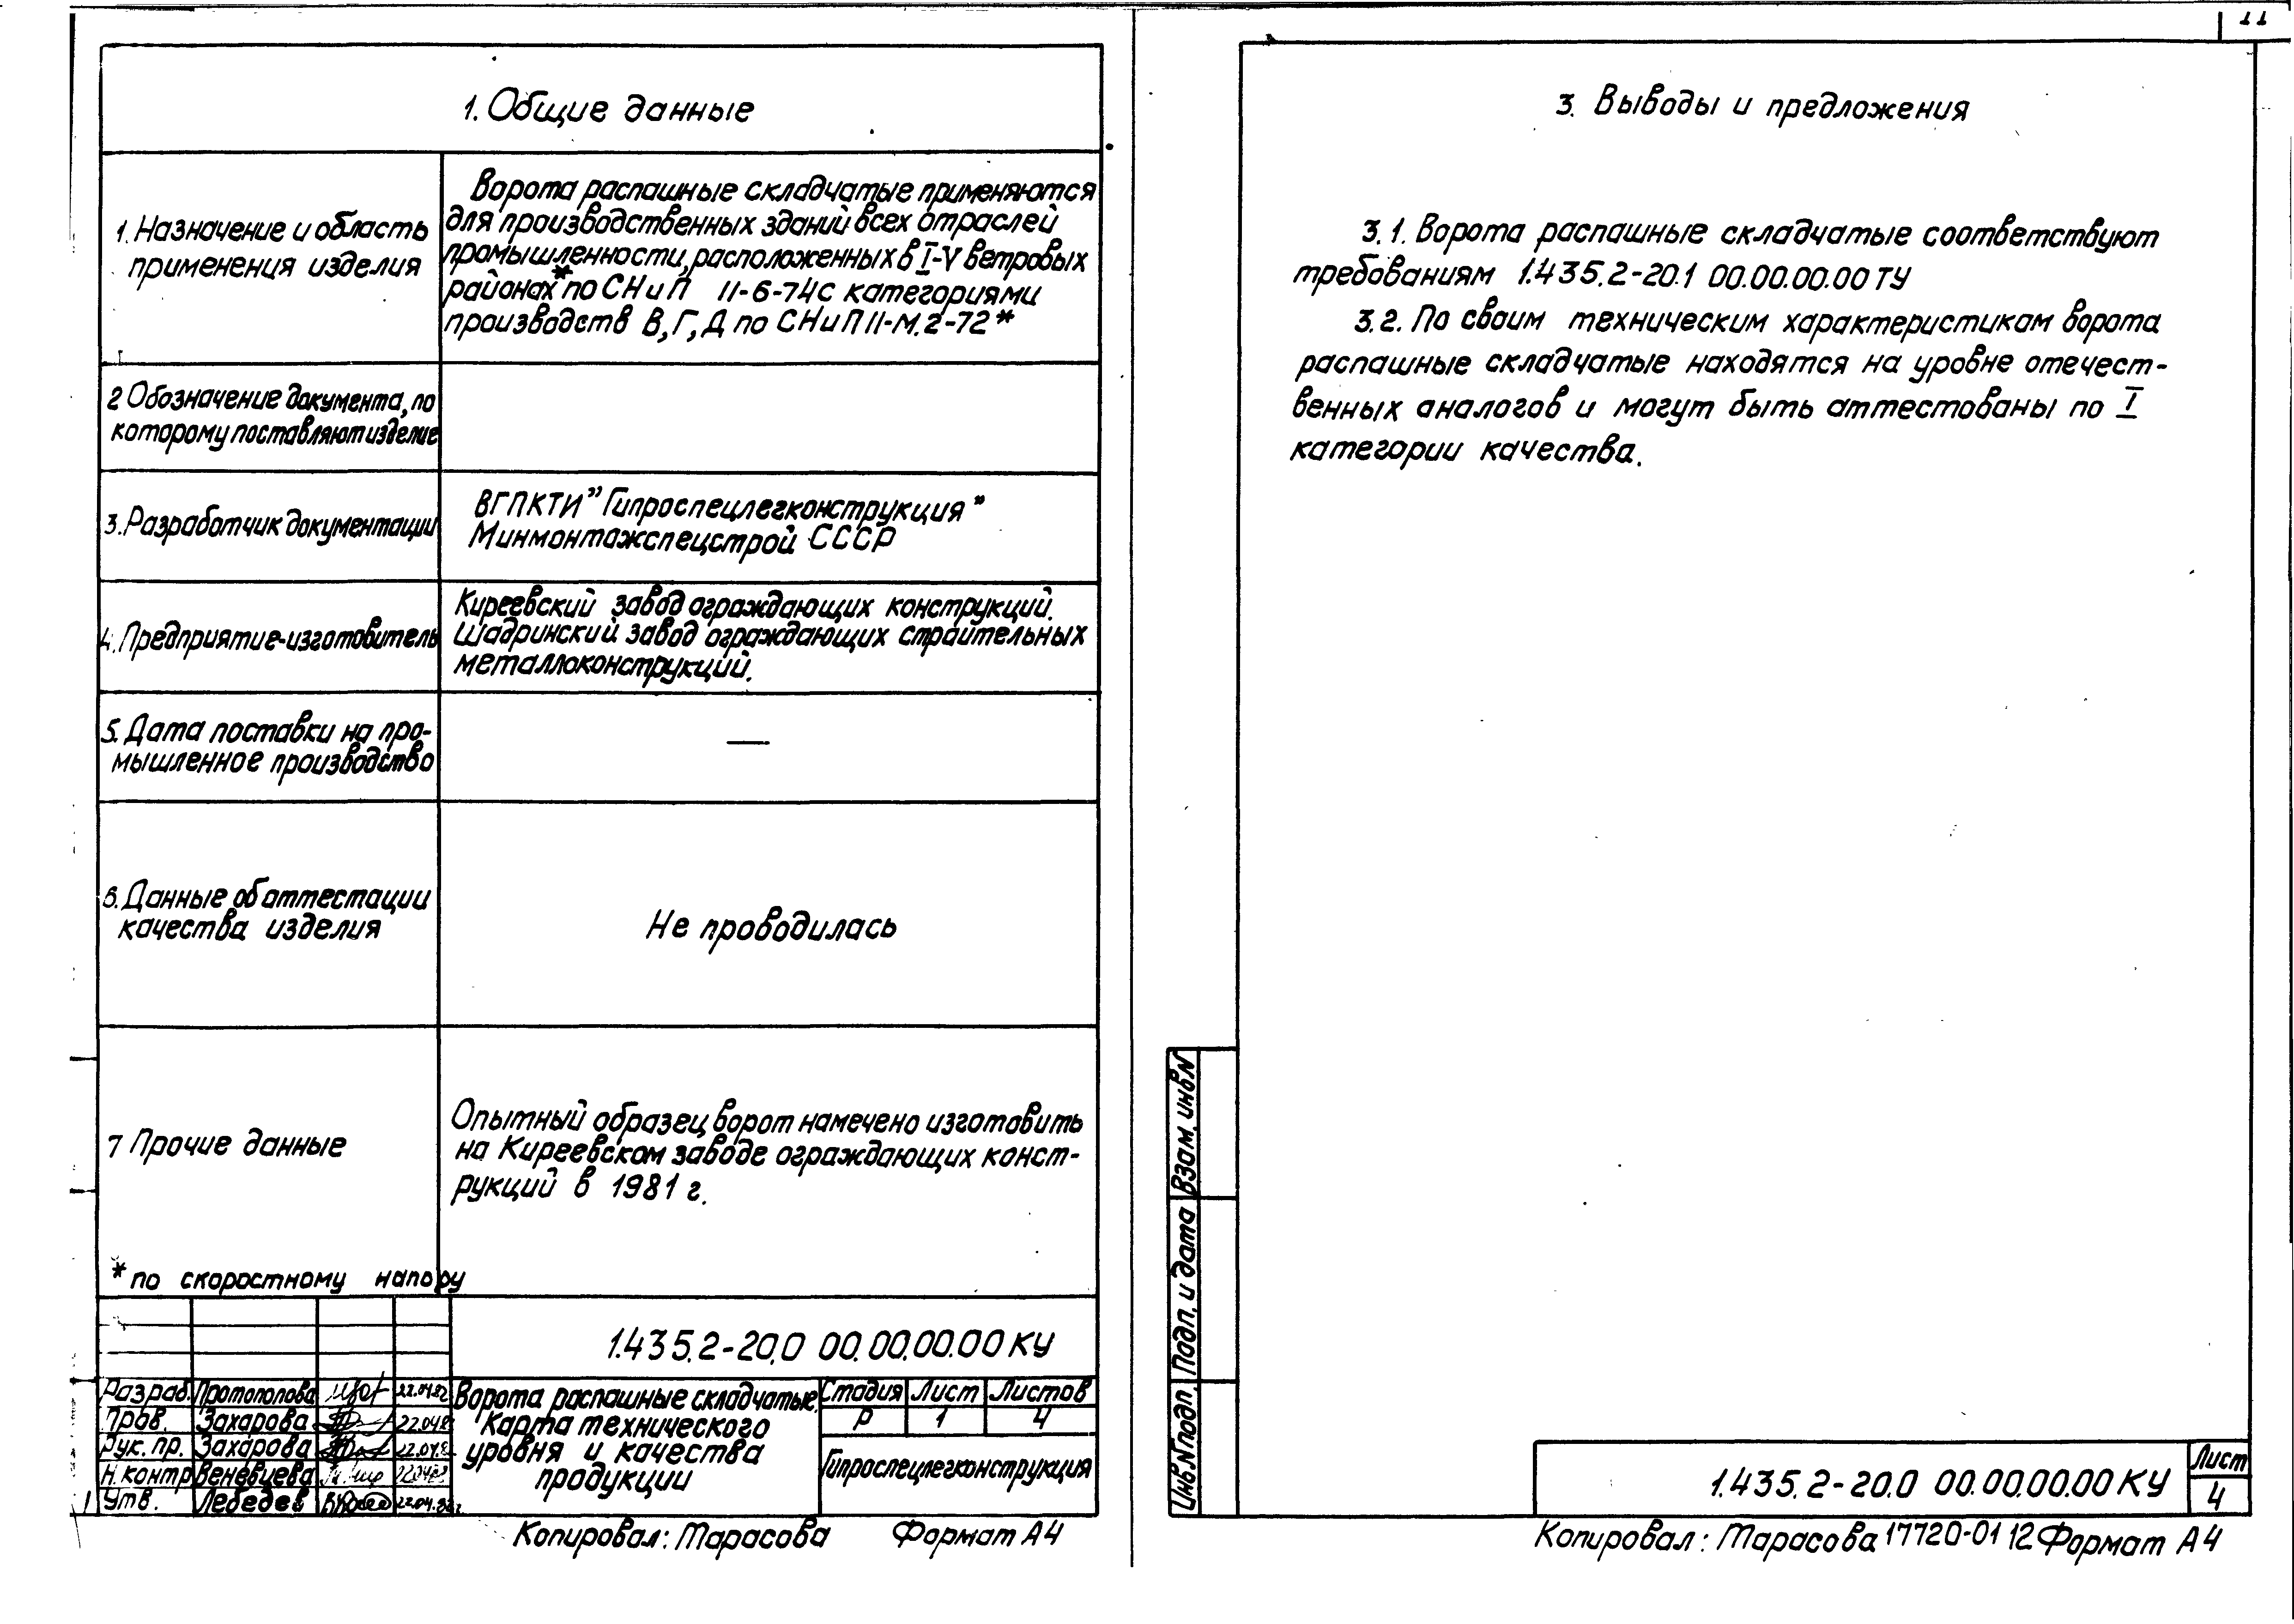 1. Общие данные
1. Назначение и область
применения изделия
Ворота распашные складчатые применяются
для производственных зданий всех отраслей
промышленности, расположенных в I-V ветровых
районах* по СНиП II-6-74 с категориями
производств В, Г, Д по СНиП II-М.2-72*
2 Обозначение документа, по
которому поставляют изделие
3. Разработчик документации
ВГПКТИ "Гипроспецлегконструкция"
Минмонтажспецстрой СССР
4. Предприятие-изготовитель
Киреевский завод ограждающих конструкций.
Шадринский завод ограждающих строительных
металлоконструкций.
5. Дата поставки на про-
мышленное производство
—
6. Данные об аттестации
качества изделия
Не проводилась
7 Прочие данные
Опытный образец ворот намечено изготовить
на Киреевском заводе ограждающих конст-
рукций в 1981 г.
* по скоростному напору
1.435.2-20.0 00.00.00.00 КУ
Разраб. Протопопова 22.04.82
Пров. Захарова 22.04.8
Рук. пр. Захарова 22.04.8
Н. контр Веневцева
Утв. Лебедев 22.04.82г.
Ворота распашные складчатые.
Карта технического
уровня и качества
продукции
Стадия Лист Листов
Р 1 4
Гипроспецлегконструкция
Копировал: Тарасова Формат А4
11
3. Выводы и предложения
3.1. Ворота распашные складчатые соответствуют
требованиям 1.435.2-20.1 00.00.00.00 ТУ
3.2. По своим техническим характеристикам ворота
распашные складчатые находятся на уровне отечест-
венных аналогов и могут быть аттестованы по I
категории качества.
Взам. инв.N
Подп. и дата
Инв.N подп.
1.435.2-20.0 00.00.00.00 КУ
Лист
4
Копировал: Тарасова 17720-01 12 Формат А4